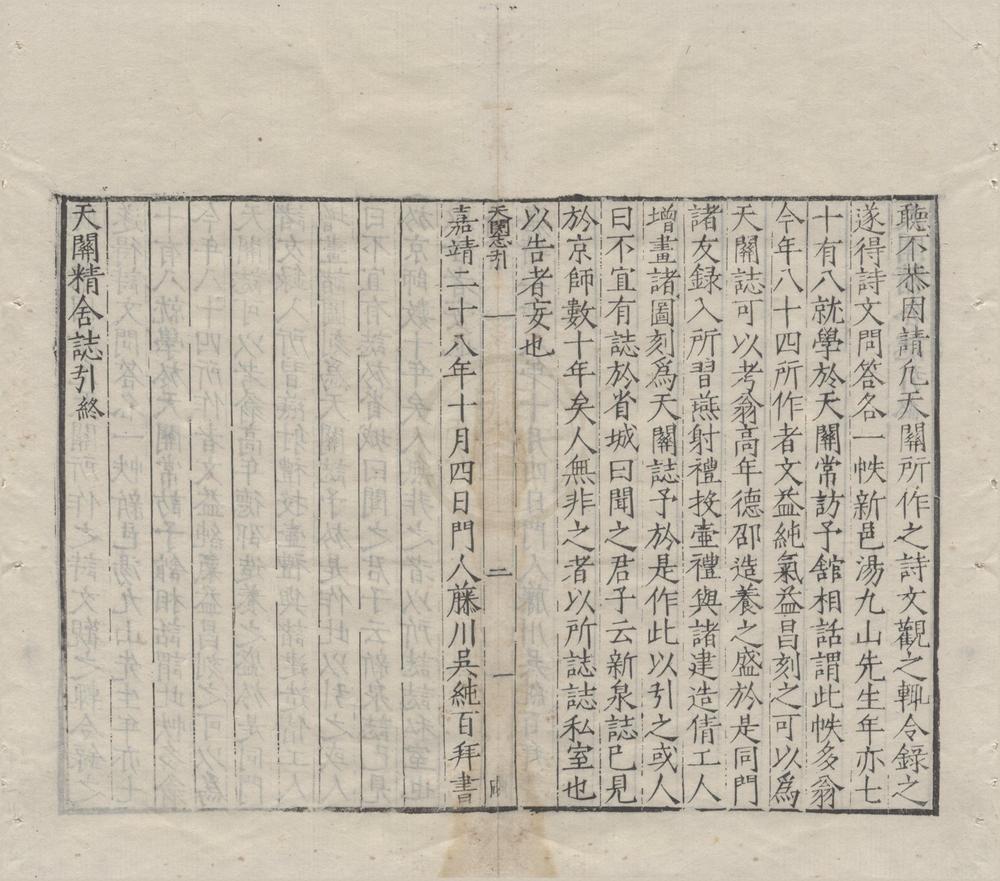 聽不恭因請凡天關所作之詩文觀之輒令錄之
遂得詩文問答各一帙新邑湯九山先生年亦七
十有八就學於天關常訪予舘相話謂此帙多翁
今年八十四所作者文益純氣益昌刻之可以爲
天關誌可以考翁高年德邵造養之盛於是同門
諸友録入所習燕射禮投壷禮與諸建造倩工人
增畫諸圖刻爲天關誌予於是作此以引之或人
曰不宜有誌於省城曰聞之君子云新泉誌已見
於京師數十年矣人無非之者以所誌誌私室也
以告者妄也
天關志引
二
一
嘉靖二十八年十月四日門人藤川吳純百拜書
天關精舍誌引終